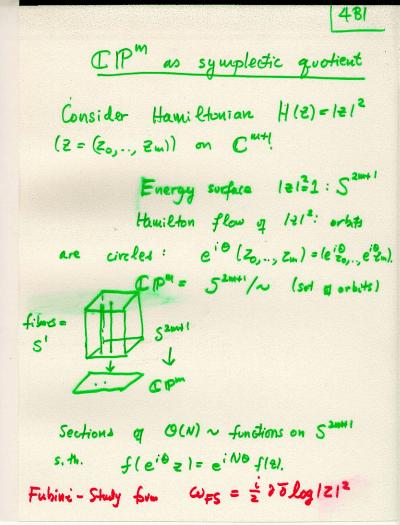 4B1
ℂℙᵐ as symplectic quotient
Consider Hamiltonian H(z)=|z|²
(z = (z₀,.., zₘ)) on ℂᵐ⁺¹.
Energy surface |z|²=1 : S²ᵐ⁺¹
Hamilton flow of |z|²: orbits
are circles : e^{iθ}(z₀,.., zₘ)=(e^{iθ}z₀,.., e^{iθ}zₘ).
ℂℙᵐ = S²ᵐ⁺¹/∼ (set of orbits)
fibres =
S¹
S²ᵐ⁺¹
↓
ℂℙᵐ
Sections of O(N) ~ functions on S²ᵐ⁺¹
s.th. f(e^{iθ} z) = e^{iNθ} f(z).
Fubini-Study form ω_{FS} = i/2 ∂∂̄ log|z|²